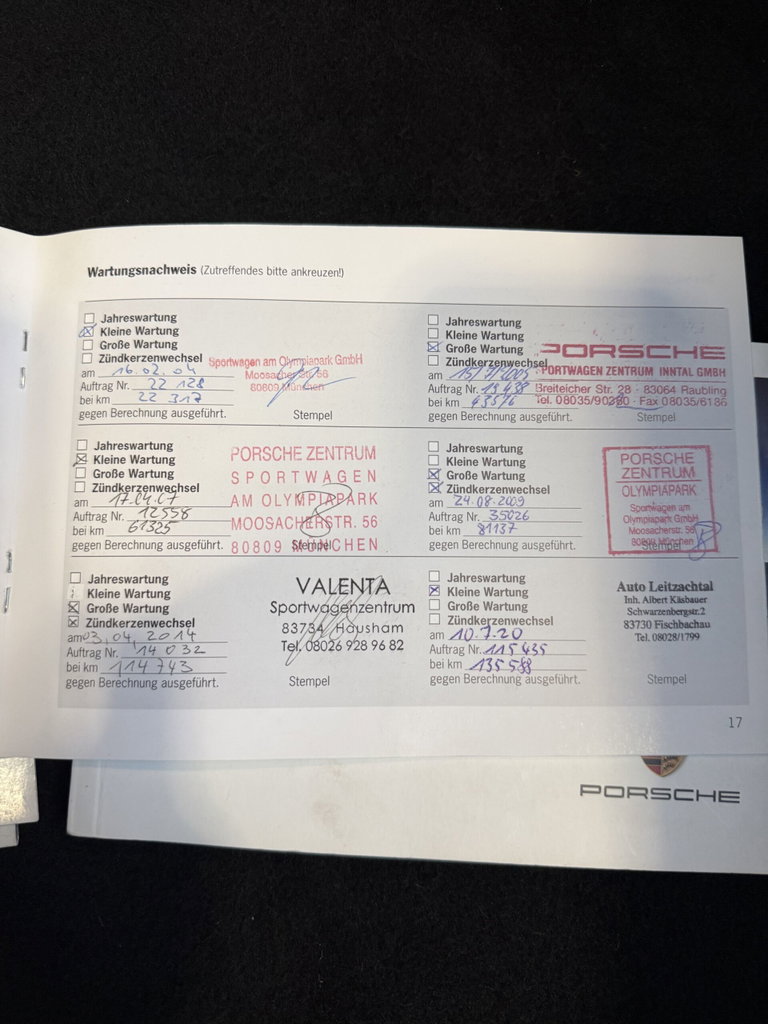 Wartungsnachweis (Zutreffendes bitte ankreuzen!)
Jahreswartung
Kleine Wartung
Große Wartung
Zündkerzenwechsel
am 16.02.04
Auftrag Nr. 22 128
bei km 22 317
gegen Berechnung ausgeführt.
Sportwagen am Olympiapark GmbH
Moosacher Str. 56
80809 München
Stempel
Jahreswartung
Kleine Wartung
Große Wartung
Zündkerzenwechsel
am 2005
Auftrag Nr. 19438
bei km
gegen Berechnung ausgeführt.
PORSCHE
SPORTWAGEN ZENTRUM INNTAL GMBH
Breiteicher Str. 28 · 83064 Raubling
Tel. 08035/90280 · Fax 08035/6186
Stempel
Jahreswartung
Kleine Wartung
Große Wartung
Zündkerzenwechsel
am 17.04.07
Auftrag Nr. 12558
bei km 61325
gegen Berechnung ausgeführt.
PORSCHE ZENTRUM
SPORTWAGEN
AM OLYMPIAPARK
MOOSACHERSTR. 56
80809 MÜNCHEN
Stempel
Jahreswartung
Kleine Wartung
Große Wartung
Zündkerzenwechsel
am 24.08.2009
Auftrag Nr. 35026
bei km 81137
gegen Berechnung ausgeführt.
PORSCHE
ZENTRUM
OLYMPIAPARK
Sportwagen am
Olympiapark GmbH
Moosacher Str. 56
80809 München
Stempel
Jahreswartung
Kleine Wartung
Große Wartung
Zündkerzenwechsel
am 03.04.2014
Auftrag Nr. 14 032
bei km 114 743
gegen Berechnung ausgeführt.
VALENTA
Sportwagenzentrum
83734 Hausham
Tel. 08026 928 96 82
Stempel
Jahreswartung
Kleine Wartung
Große Wartung
Zündkerzenwechsel
am 10.7.20
Auftrag Nr. 115435
bei km 135588
gegen Berechnung ausgeführt.
Auto Leitzachtal
Inh. Albert Käsbauer
Schwarzenbergstr.2
83730 Fischbachau
Tel. 08028/1799
Stempel
17
PORSCHE